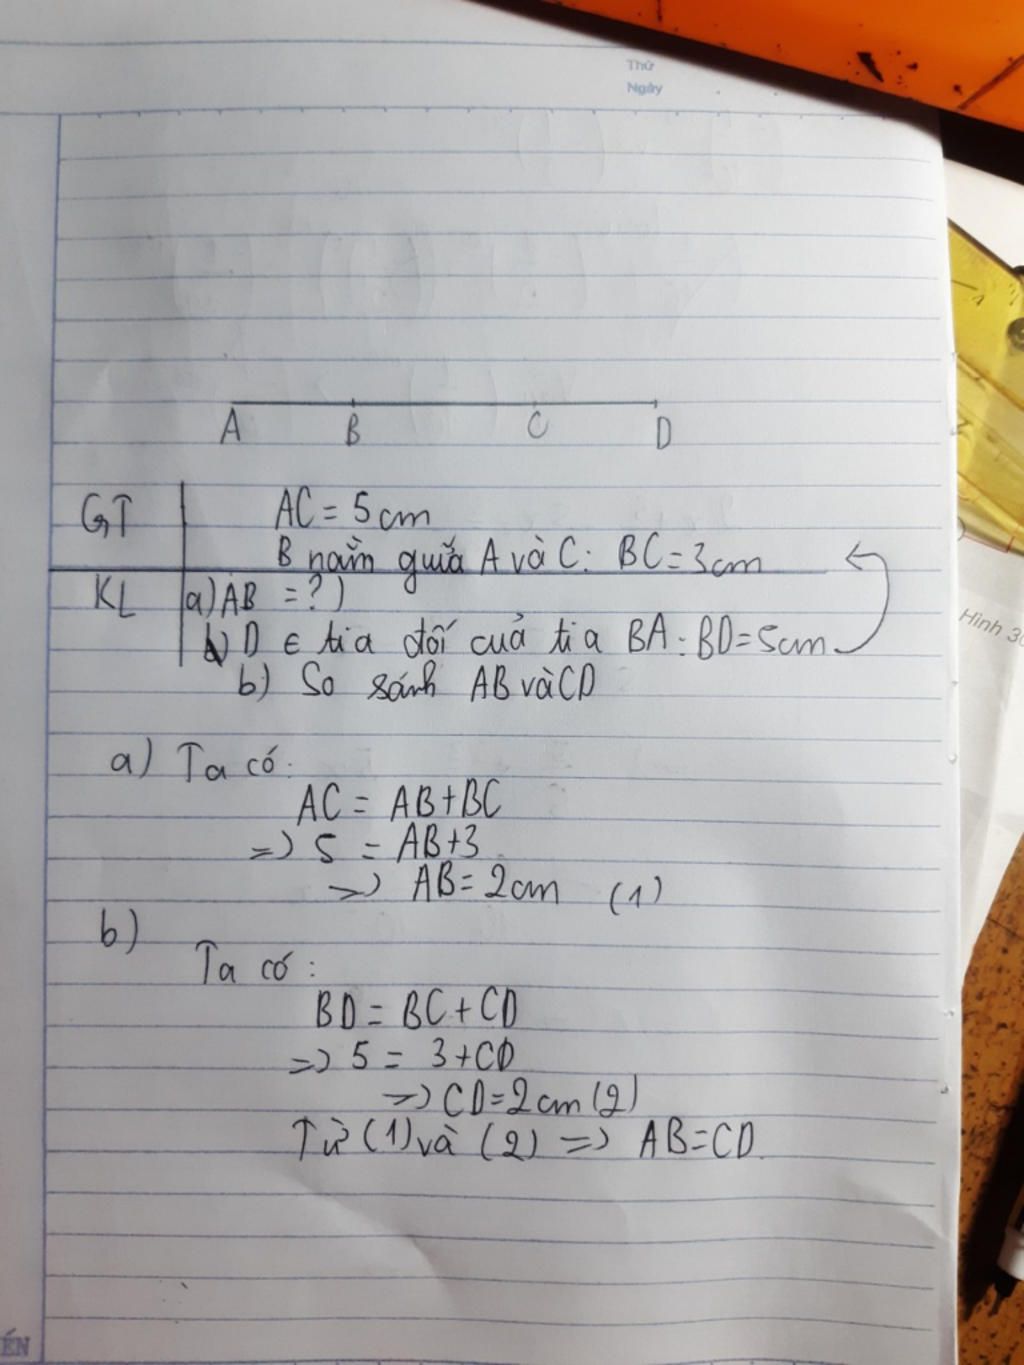 Thứ
Ngày
A B C D
GT AC = 5cm
B nằm giữa A và C: BC = 3cm
KL a) AB = ?)
b) D ∈ tia đối của tia BA: BD = 5cm
b) So sánh AB và CD
a) Ta có:
AC = AB + BC
=> 5 = AB + 3
=> AB = 2cm (1)
b)
Ta có:
BD = BC + CD
=> 5 = 3 + CD
=> CD = 2cm (2)
Từ (1) và (2) => AB = CD.
4
Hình 3
ẾN